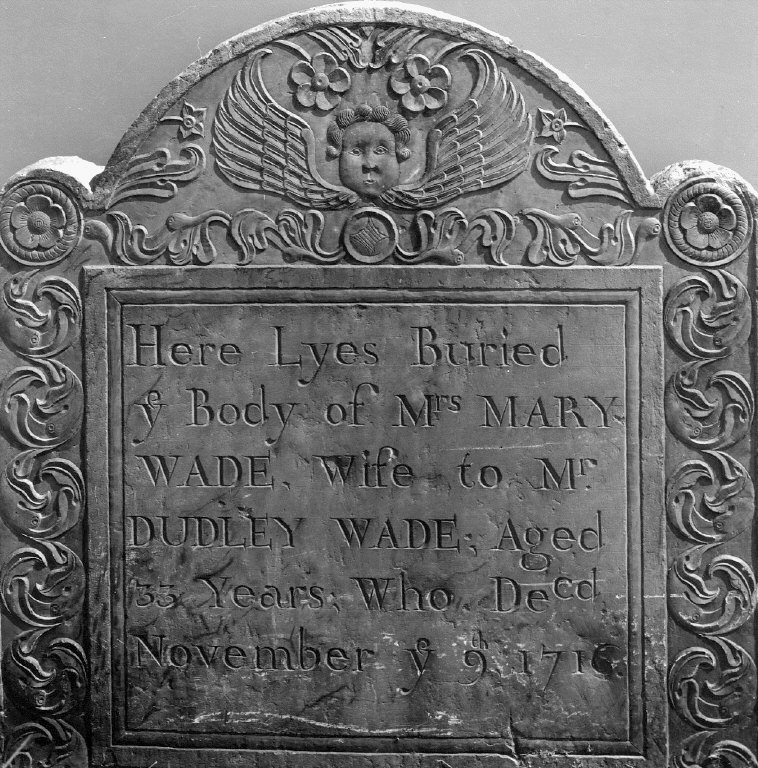 Here Lyes Buried
yᵉ Body of Mʳˢ MARY
WADE, Wife to Mʳ.
DUDLEY WADE; Aged
33 Years; Who Deᶜᵈ
November yᵉ 9ᵗʰ. 1716.